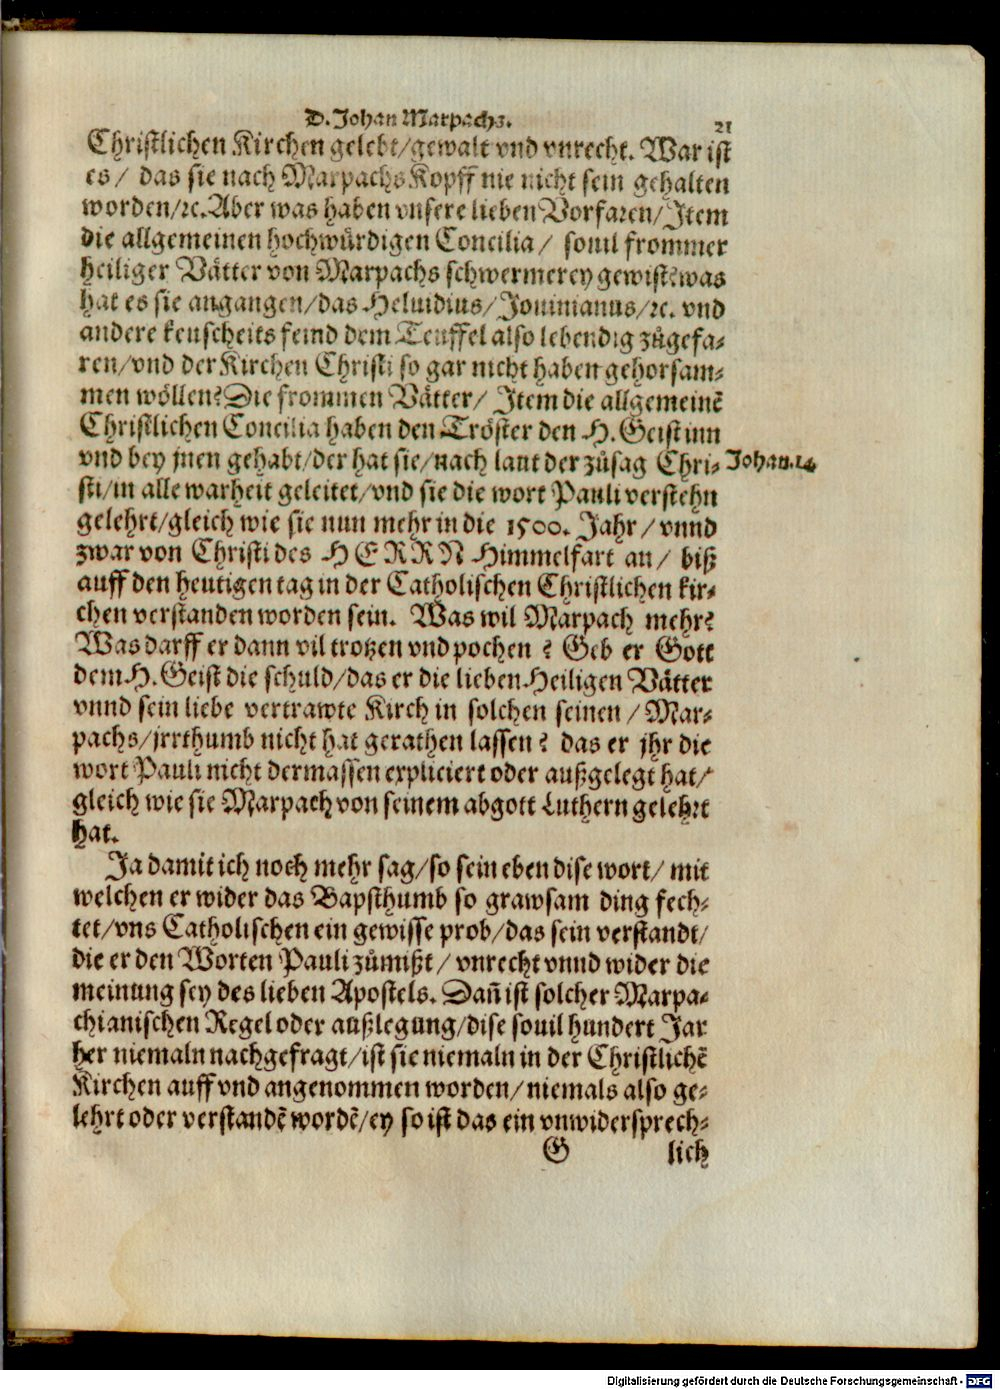 D. Johan Marpachs.
21
Christlichen Kirchen gelebt/gewalt vnd vnrecht. War ist
es/ das sie nach Marpachs Kopff nie nicht sein gehalten
worden/ꝛc. Aber was haben vnsere lieben Vorfaren/Item
die allgemeinen hochwürdigen Concilia/ souil frommer
heiliger Vätter von Marpachs schwermerey gewist? was
hat es sie angangen/das Heluidius/Jouinianus/ꝛc. vnd
andere keuscheits feind dem Teuffel also lebendig zůgefa-
ren/vnd der Kirchen Christi so gar nicht haben gehorsam-
men wöllen? Die frommen Vätter/ Item die allgemeinẽ
Christlichen Concilia haben den Tröster den H. Geist inn
vnd bey jnen gehabt/der hat sie/nach laut der zůsag Chri-
Johan.14
sti/in alle warheit geleitet/vnd sie die wort Pauli verstehn
gelehrt/gleich wie sie nun mehr in die 1500. Jahr/ vnnd
zwar von Christi des HERRN Himmelfart an/ biß
auff den heutigen tag in der Catholischen Christlichen kir-
chen verstanden worden sein. Was wil Marpach mehr?
Was darff er dann vil trotzen vnd pochen? Geb er Gott
dem H. Geist die schuld/das er die lieben Heiligen Vätter
vnnd sein liebe vertrawte Kirch in solchen seinen/ Mar-
pachs/jrrthumb nicht hat gerathen lassen? das er jhr die
wort Pauli nicht dermassen expliciert oder außgelegt hat/
gleich wie sie Marpach von seinem abgott Luthern gelehrt
hat.
Ja damit ich noch mehr sag/so sein eben dise wort/ mit
welchen er wider das Bapsthumb so grawsam ding fech-
tet/vns Catholischen ein gewisse prob/das sein verstandt/
die er den Worten Pauli zůmißt/ vnrecht vnnd wider die
meinung sey des lieben Apostels. Dañ ist solcher Marpa-
chianischen Regel oder außlegung/dise souil hundert Jar
her niemaln nachgefragt/ist sie niemaln in der Christlichẽ
Kirchen auff vnd angenommen worden/niemals also ge-
lehrt oder verstandẽ wordẽ/ey so ist das ein vnwidersprech-
G
lich
Digitalisierung gefördert durch die Deutsche Forschungsgemeinschaft - DFG